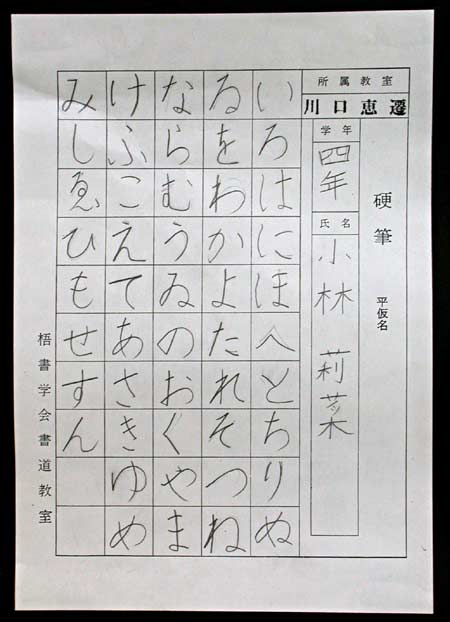 硬筆 平仮名
所属教室
川口恵遷
学年
四年
氏名
小林 莉菜
いろはにほへとちりぬ
るをわかよたれそつね
ならむうゐのおくやま
けふこえてあさきゆめ
みしゑひもせすん
梧書学会書道教室